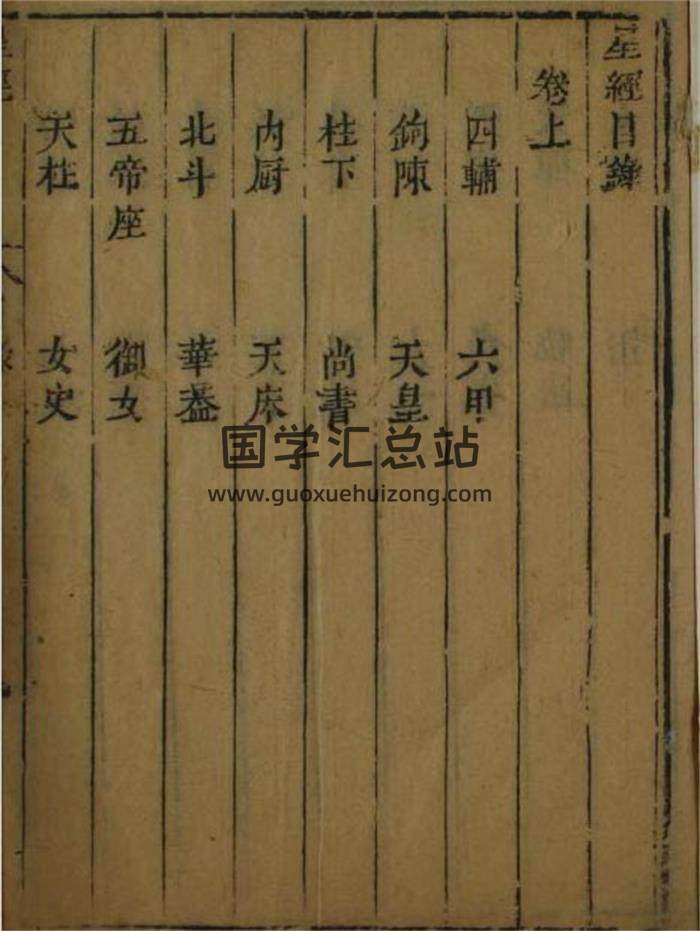 星經目錄
卷上
四輔 六甲
鉤陳 天皇
柱下 尚書
內厨 天床
北斗 華蓋
五帝座 御女
天柱 女史
国学汇总站
www.guoxuehuizong.com